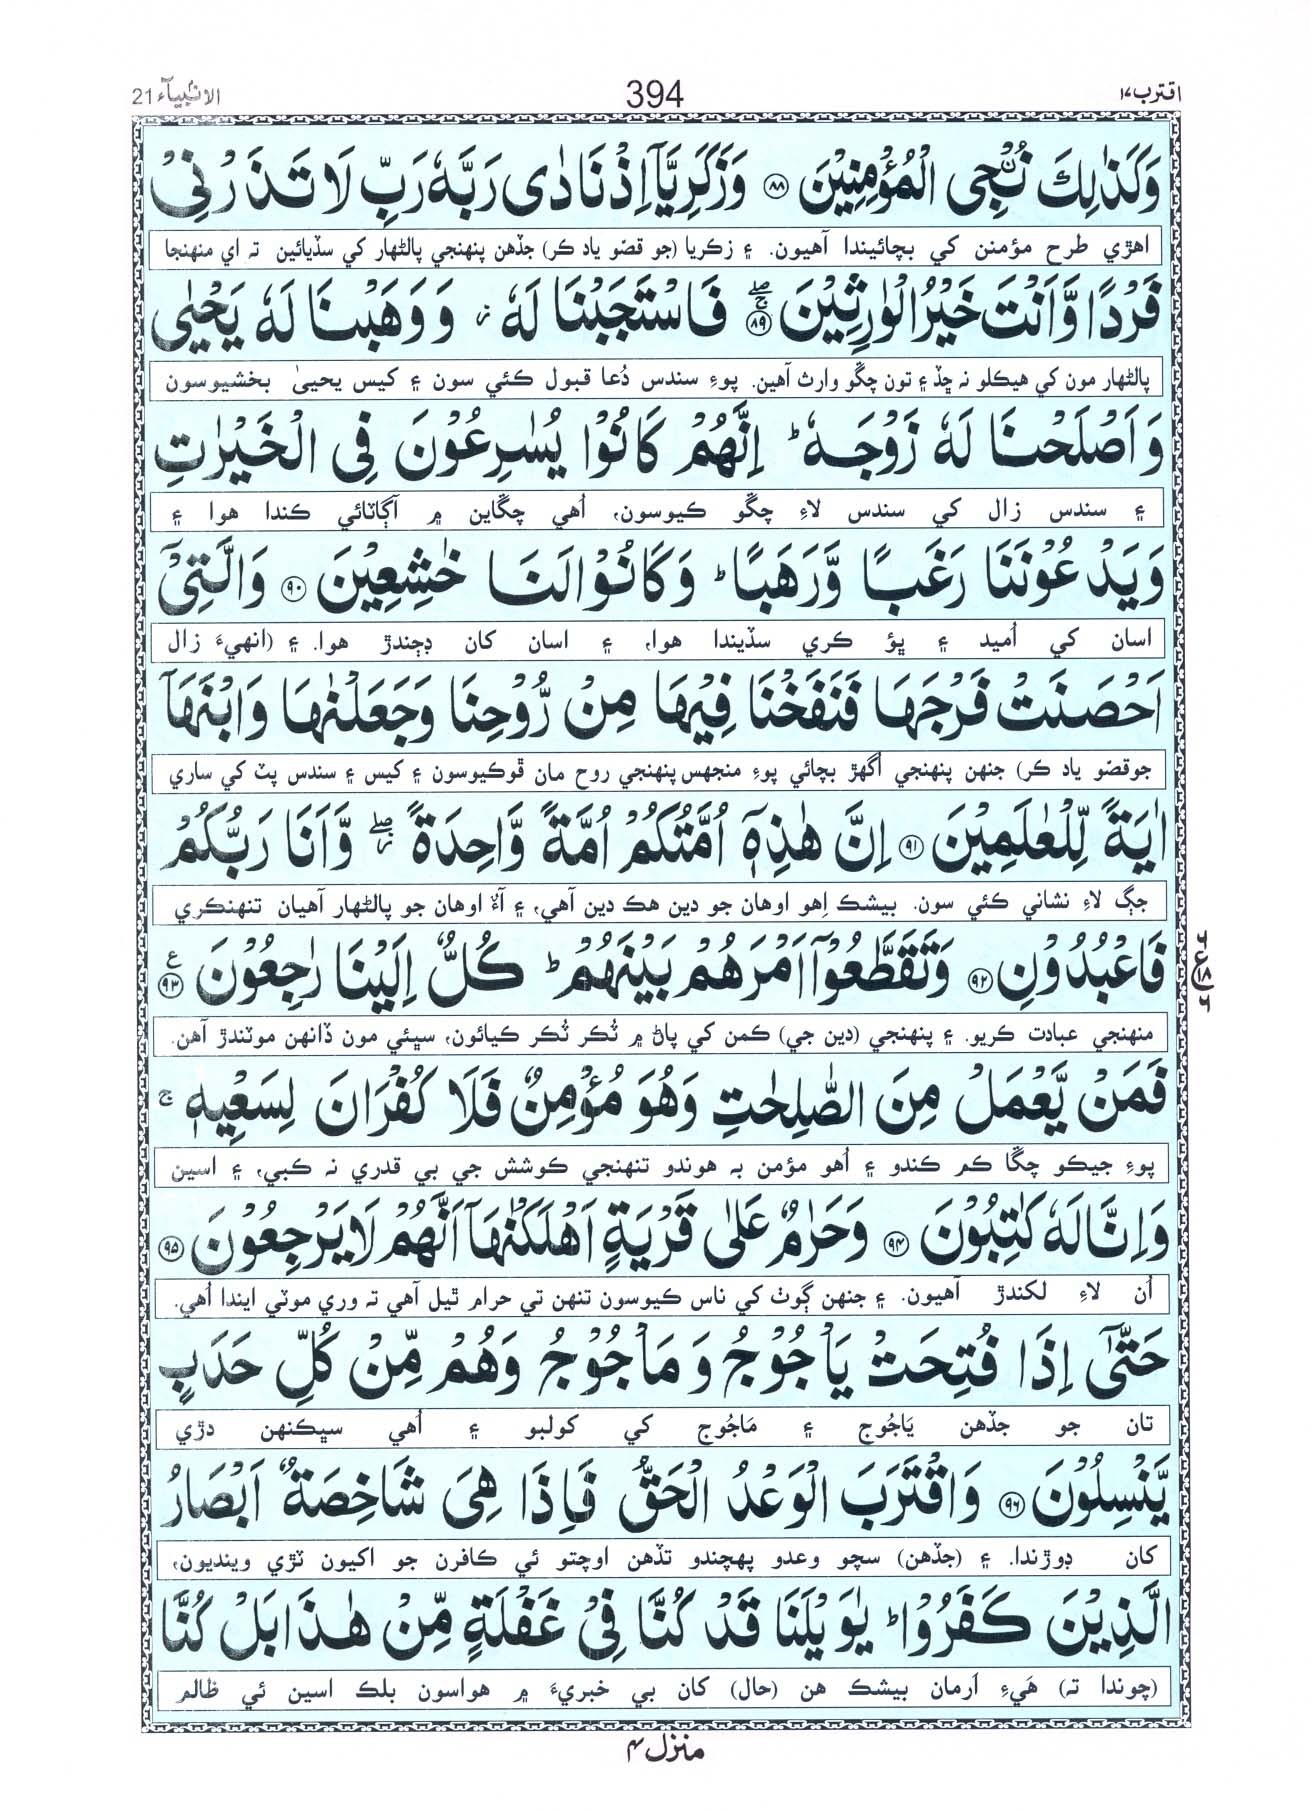 اقترب ١٧
394
الانبيآء 21
وَكَذٰلِكَ نُــْۨجِى الْمُؤْمِنِيْنَ ٨٨ وَزَكَرِيَّاۤ اِذْ نَادٰى رَبَّهٗ رَبِّ لَا تَذَرْنِىْ
اهڙي طرح مؤمنن کي بچائيندا آهيون. ۽ زڪريا (جو قصو ياد ڪر) جڏهن پنهنجي پالڻهار کي سڏيائين ته اي منهنجا
فَرْدًا وَّاَنْتَ خَيْرُ الْوٰرِثِيْنَ ۖۚ ٨٩ فَاسْتَجَبْنَا لَهٗ ز وَوَهَبْنَا لَهٗ يَحْيٰى
پالڻهار مون کي هيڪلو نہ ڇڏ ۽ تون چڱو وارث آهين. پوءِ سندس دُعا قبول ڪئي سون ۽ کيس يحييٰ بخشيوسون
وَاَصْلَحْنَا لَهٗ زَوْجَهٗ ؕ اِنَّهُمْ كَانُوْا يُسٰرِعُوْنَ فِى الْخَيْرٰتِ
۽ سندس زال کي سندس لاءِ چڱو ڪيوسون، اُهي چڱاين ۾ آڳاٽائي ڪندا هوا ۽
وَيَدْعُوْنَنَا رَغَبًا وَّرَهَبًا ؕ وَكَانُوْا لَنَا خٰشِعِيْنَ ٩٠ وَالَّتِىْۤ
اسان کي اُميد ۽ ڀؤ ڪري سڏيندا هوا، ۽ اسان کان ڊڄندڙ هوا. ۽ (انهيءَ زال
اَحْصَنَتْ فَرْجَهَا فَنَفَخْنَا فِيْهَا مِنْ رُّوْحِنَا وَجَعَلْنٰهَا وَابْنَهَاۤ
جوقصو ياد ڪر) جنهن پنهنجي اُگهڙ بچائي پوءِ منجهس پنهنجي روح مان ڦوڪيوسون ۽ کيس ۽ سندس پٽ کي ساري
اٰيَةً لِّلْعٰلَمِيْنَ ٩١ اِنَّ هٰذِهٖۤ اُمَّتُكُمْ اُمَّةً وَّاحِدَةً ۖز وَّاَنَا رَبُّكُمْ
جڳ لاءِ نشاني ڪئي سون. بيشڪ اِهو اوهان جو دين هڪ دين آهي، ۽ آءٌ اوهان جو پالڻهار آهيان تنهنڪري
فَاعْبُدُوْنِ ٩٢ وَتَقَطَّعُوْۤا اَمْرَهُمْ بَيْنَهُمْ ؕ كُلٌّ اِلَيْنَا رٰجِعُوْنَ ع ٩٣
منهنجي عبادت ڪريو. ۽ پنهنجي (دين جي) ڪمن کي پاڻ ۾ ٽُڪر ٽُڪر ڪيائون، سڀئي مون ڏانهن موٽندڙ آهن.
فَمَنْ يَّعْمَلْ مِنَ الصّٰلِحٰتِ وَهُوَ مُؤْمِنٌ فَلَا كُفْرَانَ لِسَعْيِهٖ ۚ
پوءِ جيڪو چڱا ڪم ڪندو ۽ اُهو مؤمن به هوندو تنهنجي ڪوشش جي بي قدري نہ ڪبي، ۽ اسين
وَاِنَّا لَهٗ كٰتِبُوْنَ ٩٤ وَحَرٰمٌ عَلٰى قَرْيَةٍ اَهْلَكْنٰهَاۤ اَنَّهُمْ لَا يَرْجِعُوْنَ ٩٥
اُن لاءِ لکندڙ آهيون. ۽ جنهن ڳوٺ کي ناس ڪيوسون تنهن تي حرام ٿيل آهي ته وري موٽي ايندا اُهي.
حَتّٰٓى اِذَا فُتِحَتْ يَاْجُوْجُ وَ مَاْجُوْجُ وَهُمْ مِّنْ كُلِّ حَدَبٍ
تان جو جڏهن يَاجُوج ۽ مَاجُوج کي کولبو ۽ اُهي سڀڪنهن دڙي
يَّنْسِلُوْنَ ٩٦ وَاقْتَرَبَ الْوَعْدُ الْحَقُّ فَاِذَا هِىَ شَاخِصَةٌ اَبْصَارُ
کان ڊوڙندا. ۽ (جڏهن) سچو وعدو پهچندو تڏهن اوچتو ئي ڪافرن جو اکيون ٽڙي وينديون،
الَّذِيْنَ كَفَرُوْا ؕ يٰوَيْلَنَا قَدْ كُنَّا فِىْ غَفْلَةٍ مِّنْ هٰذَا بَلْ كُنَّا
(چوندا ته) هَيءِ اَرمان بيشڪ هن (حال) کان بي خبريءَ ۾ هواسون بلڪ اسين ئي ظالم
منزل ٤